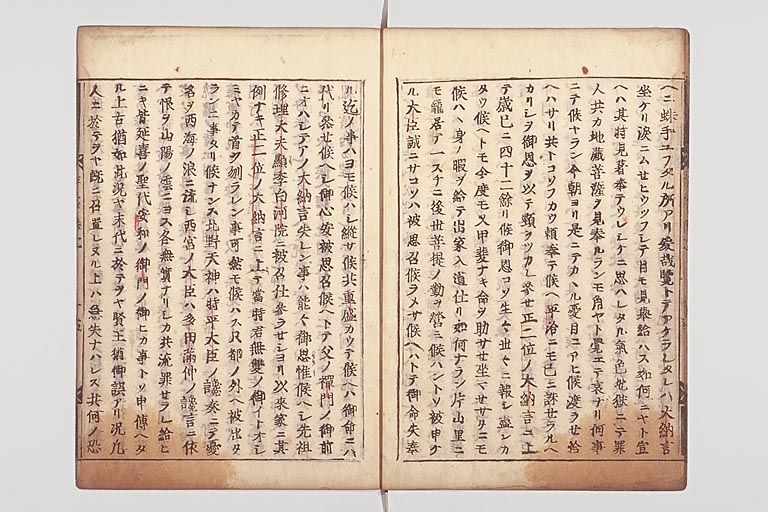 ヘニ蛛手ユフタル所アリ爰哉覧トテアケラレタレハ大納言
坐ケリ涙ニムセヒウツフシテ目モ見奉給ハス如何ニヤト宣
ヘハ其時見著奉テウレシケニ思ハレタル氣色地獄ニテ罪
人共カ地蔵菩薩ヲ見奉ルランモ角ヤト覺エテ哀ナリ何事
ニテ候ヤラン今朝ヨリ是ニテカヽル憂目ニアヒ候渡ラセ給
ヘハサリ共トコソフカウ頼奉テ候ヘ平治ニモ已ニ誅セラルヘ
カリシヲ御恩ヲ以テ頸ヲツカレ参セ正二位ノ大納言ニ上
テ歳已ニ四十ニ餘リ候御恩コソ生々世々ニ報シ盡シカ
タウ候ヘトモ今度モ又甲斐ナキ命ヲ助サセ坐マセサタニモ
候ハヽ身ノ暇ヲ給テ出家入道仕リ如何ナラン片山里ニ
モ籠居テ一スチニ後世菩提ノ勤ヲ營ミ候ハントソ被申ケ
ル大臣誠ニサコソハ被思召候ラメサ候ヘハトテ御命失奉
ル迄ノ事ハヨモ候ハシ縦サ候共重盛カウテ候ヘハ御命ニハ
代リ参セ候ヘシ御心安被思召候ヘトテ父ノ禪門ノ御前
ニオハシテアノ大納言失レン事ハ能々御思惟候ヘシ先祖
修理大夫顯季白河院ニ被召仕参ラセショリ以來家ニ其
例ナキ正二位ノ大納言ニ上テ當時君無雙ノ御イトオシ
ミヤカテ首ヲ刎ラレン事可然モ候ハス只都ノ外ヘ被出タ
ランニ事タリ候ナンス北野天神ハ時平大臣ノ讒奏ニテ憂
名ヲ西海ノ浪ニ流シ西宮ノ大臣ハ多田満仲ノ讒言ニ依
テ恨ヲ山陽ノ雲ニヨス各無實ナリシカ共流罪セラレ給ヒ
ニキ皆延喜ノ聖代安和ノ御門ノ御ヒカ事トソ申傳ヘタ
ル上古猶如此況ヤ末代ニ於テヲヤ賢王猶御誤アリ況凡
人ニ於テヲヤ既ニ召置レヌル上ハ急失ナハレス共何ノ恐